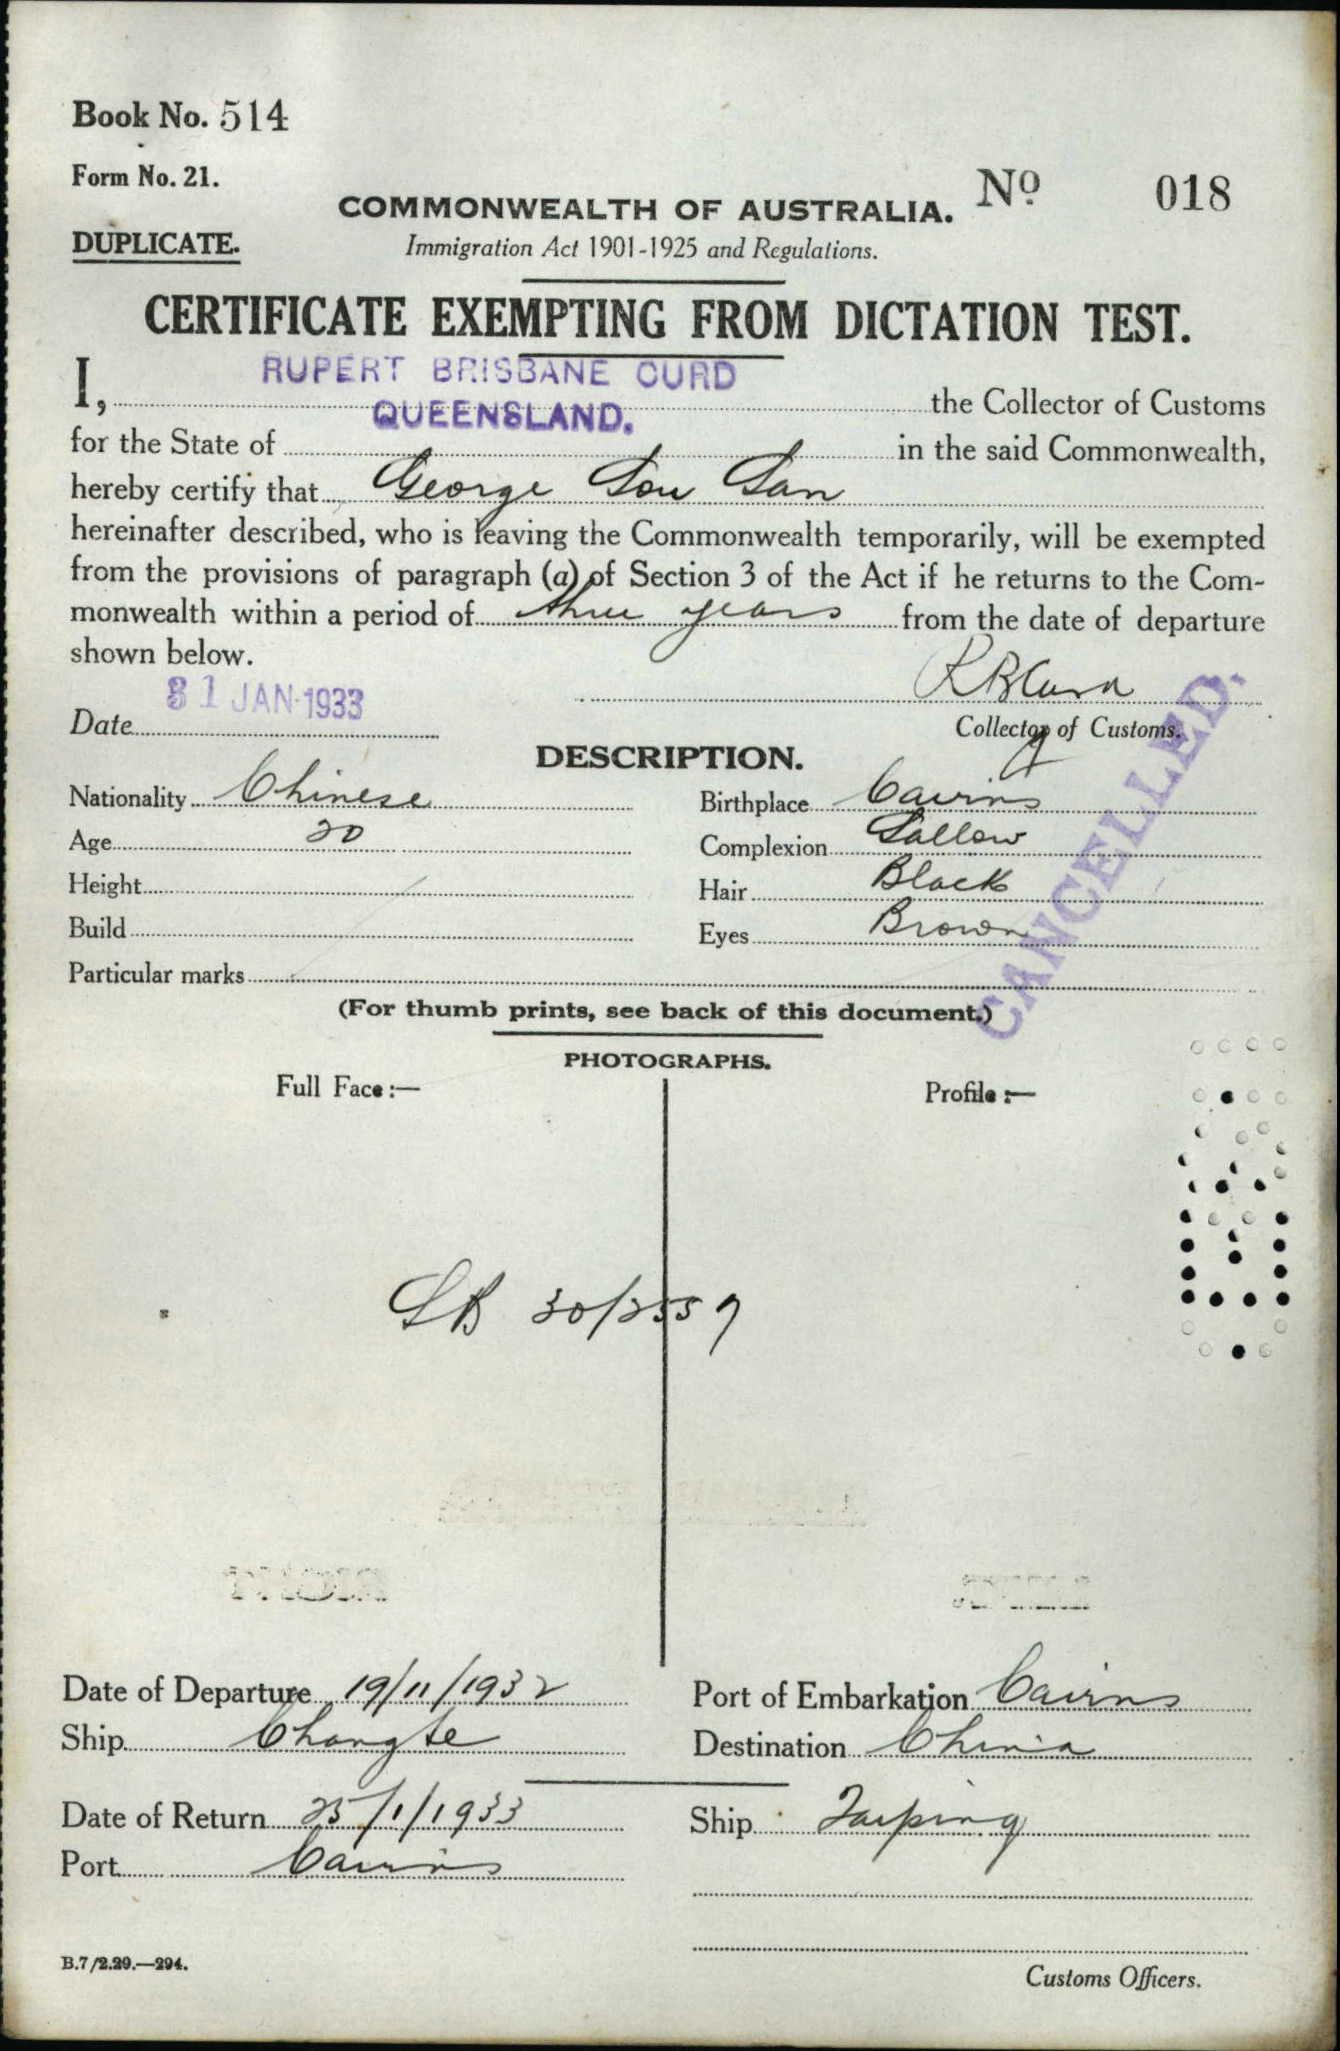 Book No. 514
Form No. 21.
DUPLICATE.
COMMONWEALTH OF AUSTRALIA.
No 018
Immigration Act 1901-1925 and Regulations.
CERTIFICATE EXEMPTING FROM DICTATION TEST.
RUPERT BRISBANE CURD
I, the Collector of Customs
QUEENSLAND.
for the State of in the said Commonwealth,
hereby certify that George Sou San
hereinafter described, who is leaving the Commonwealth temporarily, will be exempted
from the provisions of paragraph (a) of Section 3 of the Act if he returns to the Com-
monwealth within a period of three years from the date of departure
shown below.
R B Curd
Date 31 JAN 1933
Collector of Customs.
CANCELLED.
DESCRIPTION.
Nationality Chinese
Birthplace Cairns
Age 20
Complexion Sallow
Height
Hair Black
Build
Eyes Brown
Particular marks
(For thumb prints, see back of this document.)
PHOTOGRAPHS.
Full Face :—
Profile :—
30/2559
Date of Departure 19/11/1932
Port of Embarkation Cairns
Ship Changte
Destination China
Date of Return 25/1/1933
Ship Taiping
Port Cairns
B.7/2.29.—294.
Customs Officers.